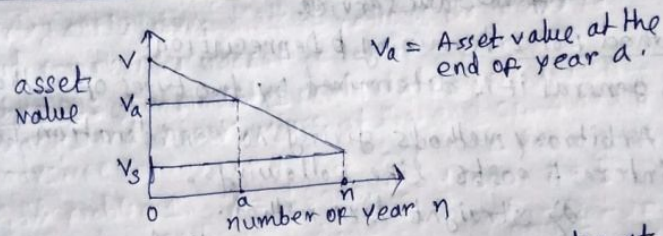 V
Va = Asset value at the
end of year a.
asset
value
Va
Vs
0
a
n
number of year n